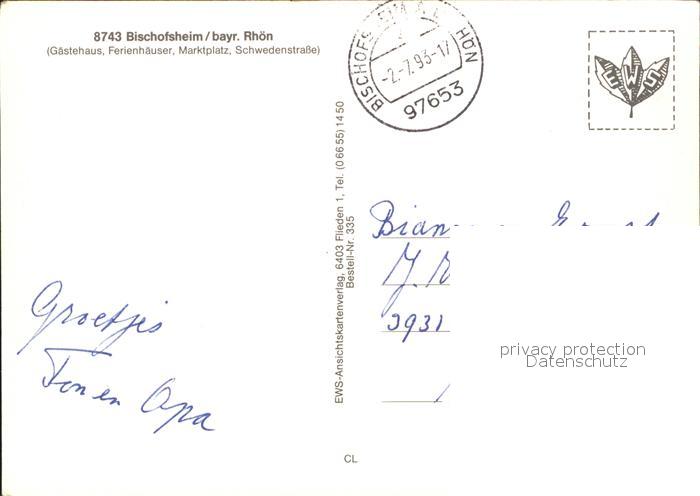 8743 Bischofsheim / bayr. Rhön
(Gästehaus, Ferienhäuser, Marktplatz, Schwedenstraße)
BISCHOFSHEIM A D RHÖN
-2.-7.93-17
97653
EWS
EWS-Ansichtskartenverlag, 6403 Flieden 1, Tel. (0 66 55) 14 50
Bestell-Nr. 335
Groetjes
Ton en Opa
Bian
J.
3931
privacy protection
Datenschutz
CL